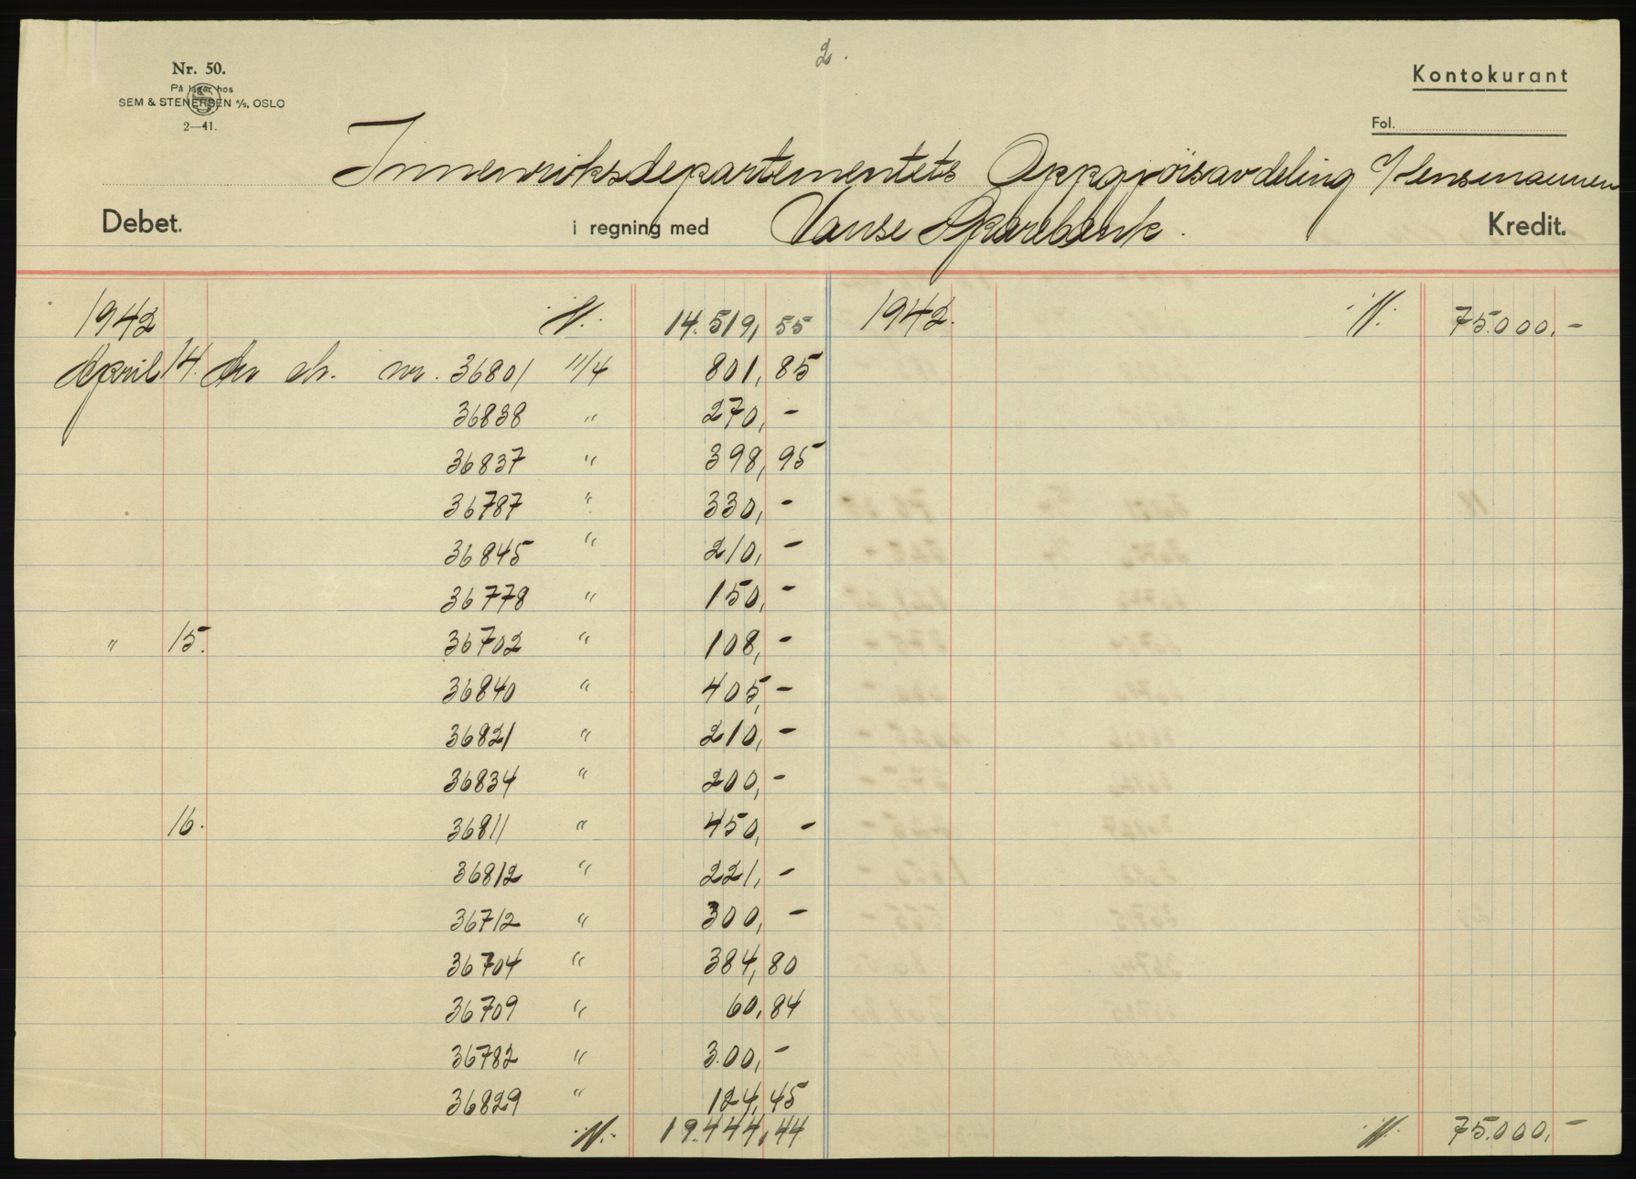 2.
Nr. 50.
På lager hos
SEM & STENERSEN A/S, OSLO
2—41.
Kontokurant
Fol.
Innenriksdepartementets Oppgjørsavdeling v/Lensmannen
Debet. i regning med Vanse Sparebank. Kredit.
1942 14.519,55 1942. 75.000,-
April 14. ch. nr. 36801 11/4 801,85
36838 " 270,-
36837 " 398,95
36787 " 330,-
36845 " 210,-
36778 " 150,-
" 15. 36702 " 108,-
36840 " 405,-
36821 " 210,-
36834 " 200,-
16. 36811 " 450,-
36812 " 221,-
36712 " 300,-
36704 " 384,80
36709 " 60,84
36782 " 300,-
36829 " 124,45
19.444,44 75.000,-